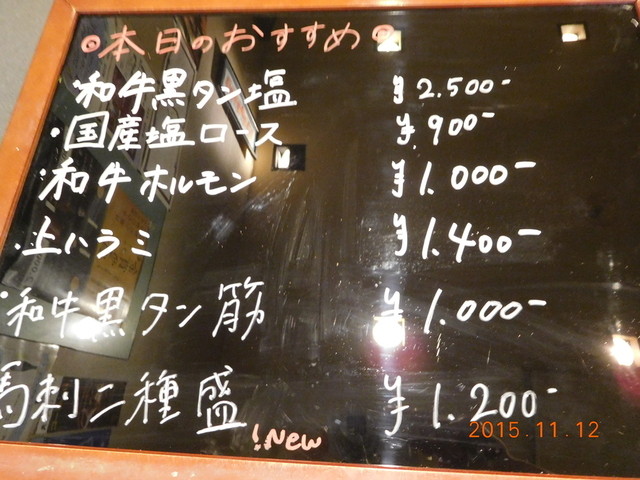 ◎本日のおすすめ◎
・和牛黒タン塩 ¥2.500-
・国産塩ロース ¥.900-
・和牛ホルモン ¥1.000-
・上ハラミ ¥1.400-
・和牛黒タン筋 ¥1.000-
馬刺二種盛 ¥1.200-
!New
2015.11.12